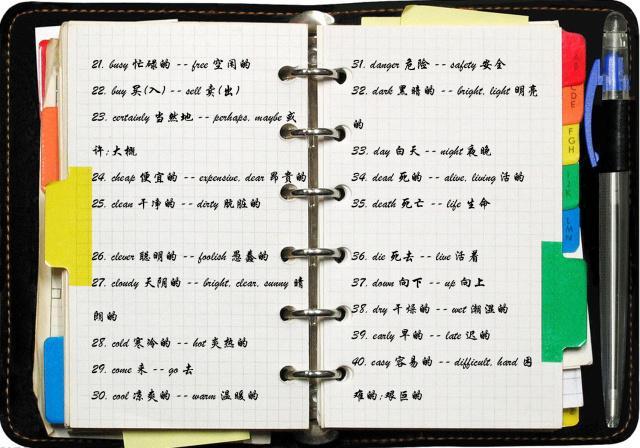 21. busy 忙碌的 -- free 空闲的
22. buy 买(入) -- sell 卖(出)
23. certainly 当然地 -- perhaps, maybe 或
许;大概
24. cheap 便宜的 -- expensive, dear 昂贵的
25. clean 干净的 -- dirty 肮脏的
26. clever 聪明的 -- foolish 愚蠢的
27. cloudy 天阴的 -- bright, clear, sunny 晴
朗的
28. cold 寒冷的 -- hot 炎热的
29. come 来 -- go 去
30. cool 凉爽的 -- warm 温暖的
31. danger 危险 -- safety 安全
32. dark 黑暗的 -- bright, light 明亮
的
33. day 白天 -- night 夜晚
34. dead 死的 -- alive, living 活的
35. death 死亡 -- life 生命
36. die 死去 -- live 活着
37. down 向下 -- up 向上
38. dry 干燥的 -- wet 潮湿的
39. early 早的 -- late 迟的
40. easy 容易的 -- difficult, hard 困
难的;艰巨的
CDE
FGH
IJK
LMN